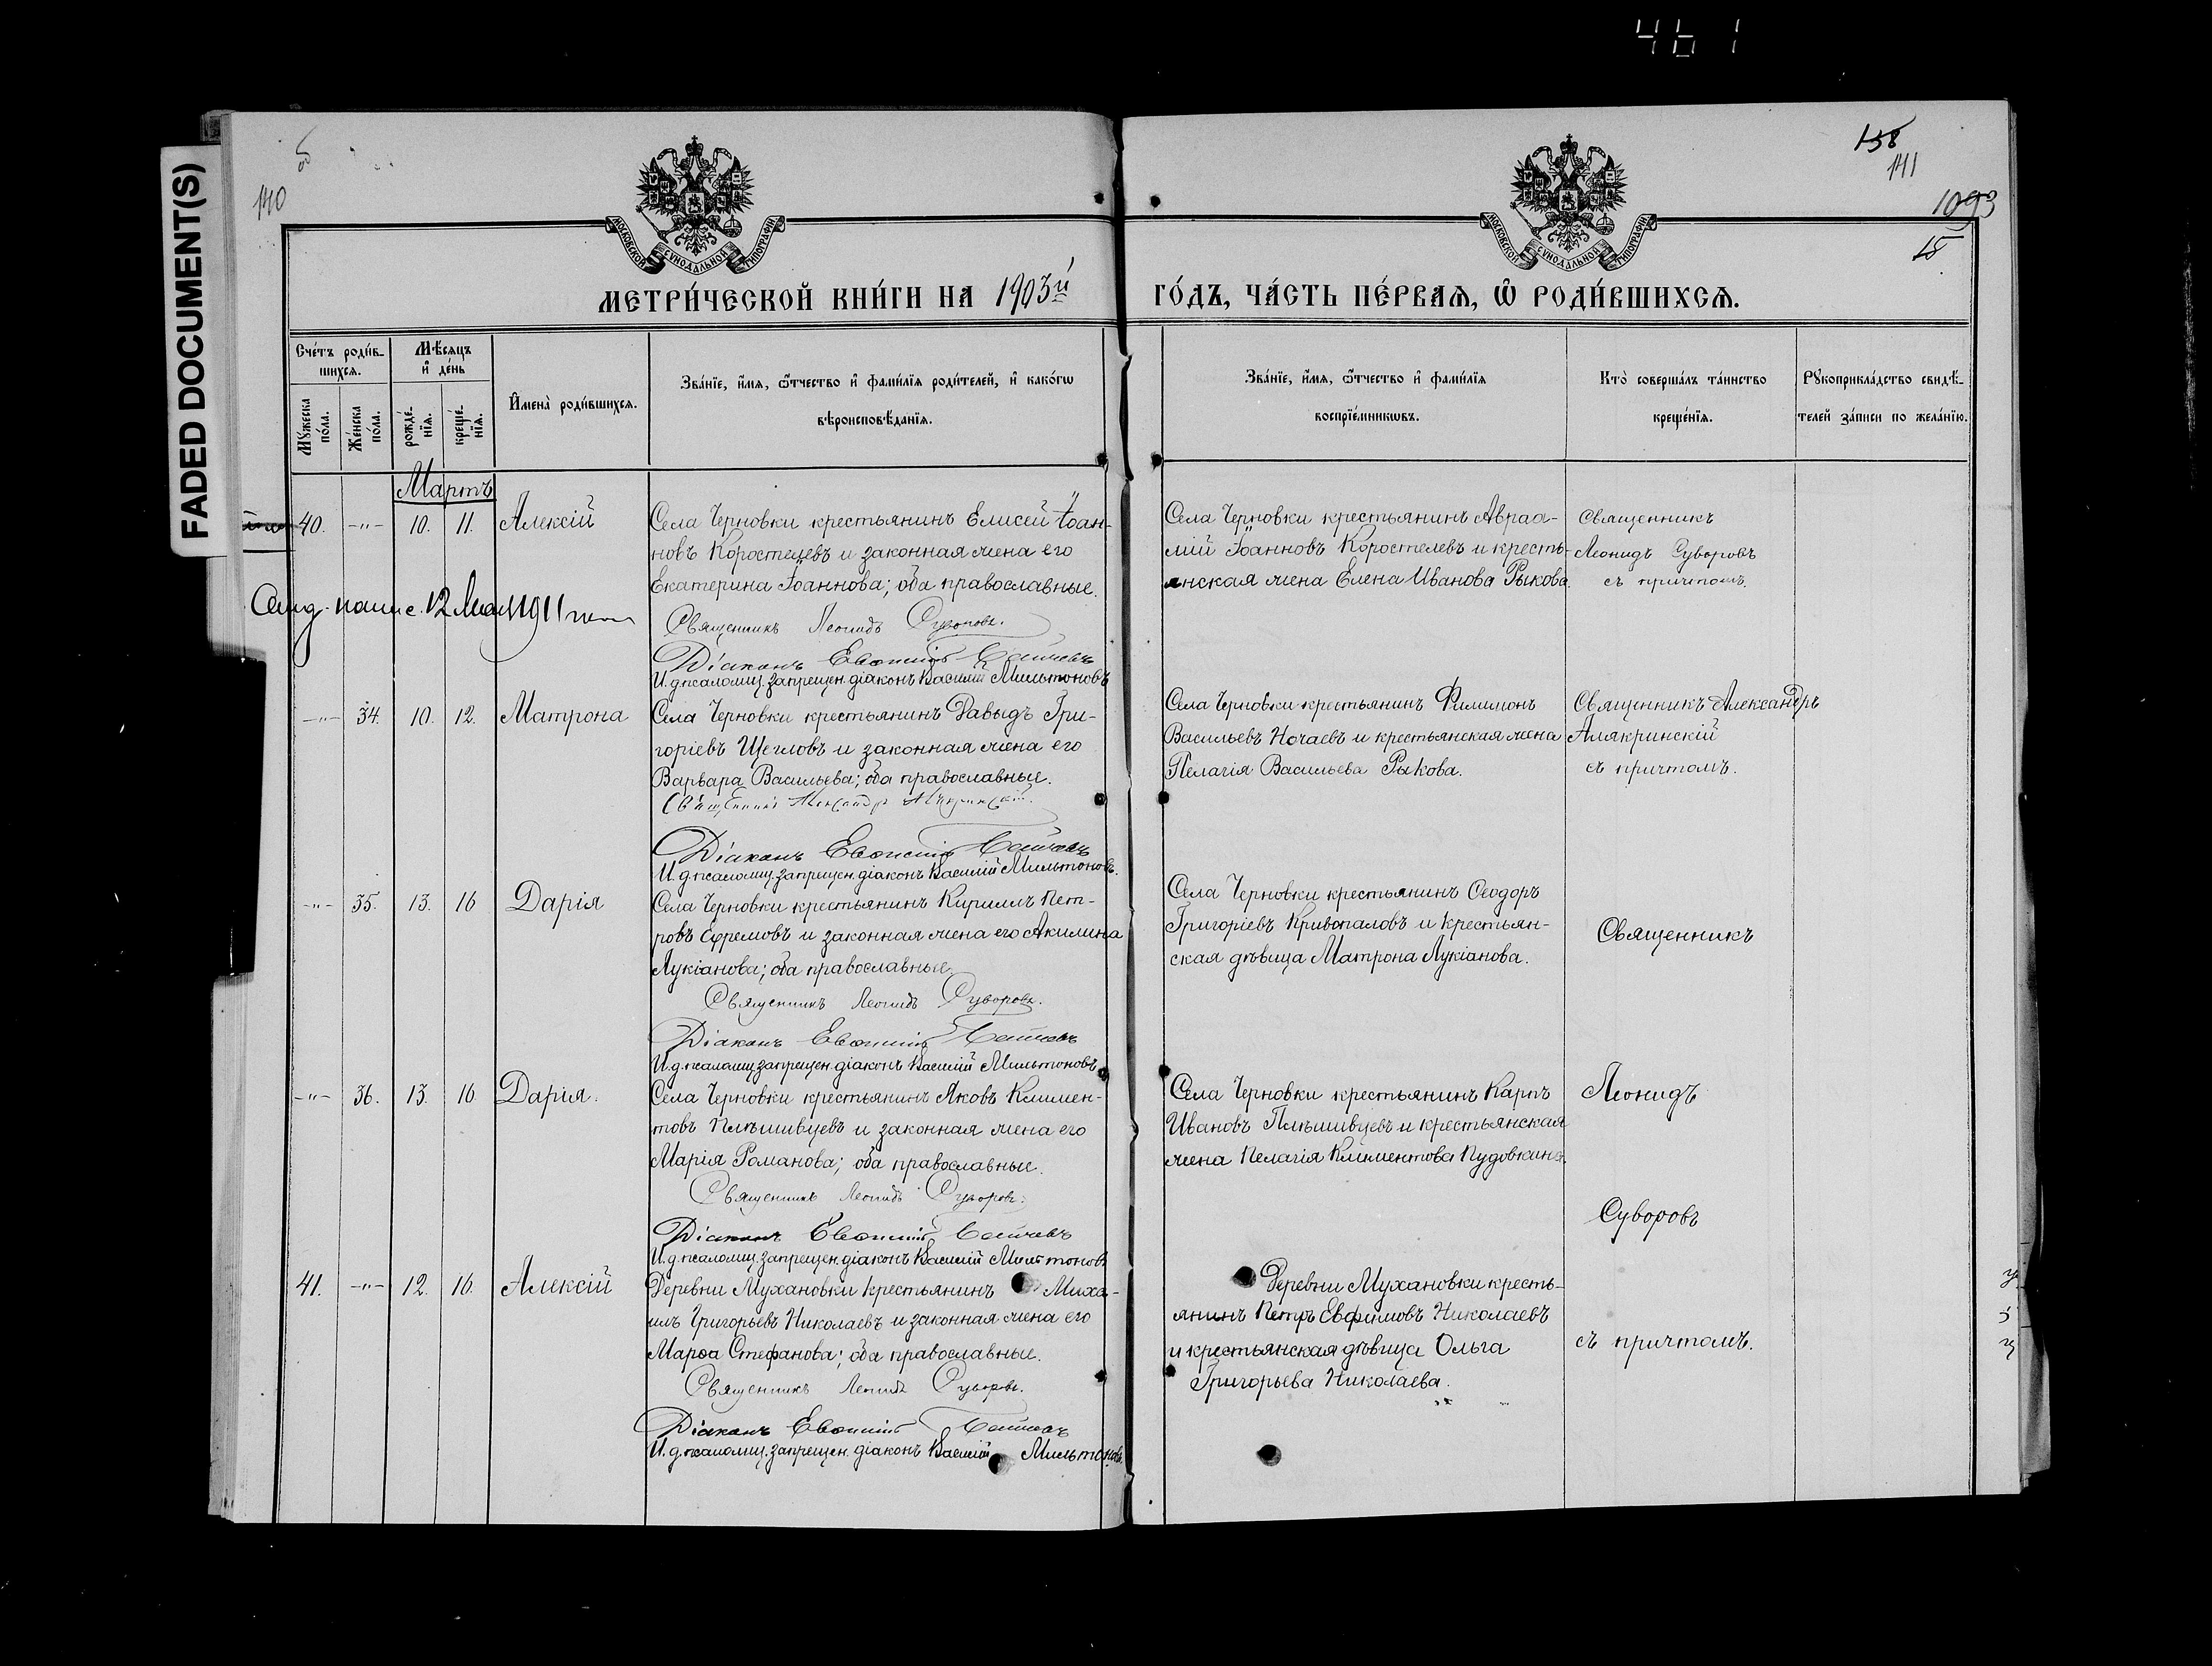 461
FADED DOCUMENT(S)
140
158
141
1093
15
МОСКОВСКОЙ СѴНОДАЛЬНОЙ ТИПОГРАФІИ
МОСКОВСКОЙ СѴНОДАЛЬНОЙ ТИПОГРАФІИ
МЕТРИ́ЧЕСКОЙ КНИ́ГИ НА 1903й ГО́ДЪ, ЧА́СТЬ ПЕ́РВАЯ, Ѽ РОДИ́ВШИХСѦ.
Сче́тъ роди́в-
шихсѧ.
Мꙋ́жеска по́ла.
Же́нска по́ла.
Мѣ́сѧцъ
и҆ де́нь
рожде́-
нїѧ.
креще́-
нїѧ.
И҆мена̀ роди́вшихсѧ.
Зва́нїе, и҆́мѧ, ѻ҆́тчество и҆ фами́лїѧ роди́телей, и҆ како́гѡ
вѣроисповѣ́данїѧ.
Зва́нїе, и҆́мѧ, ѻ҆́тчество и҆ фами́лїѧ
воспрїе́мникѡвъ.
Кто̀ соверша́лъ та́инство
креще́нїѧ.
Рꙋкоприкла́дство свидѣ́-
телей за́писи по жела́нїю.
Мартъ
40. -"- 10. 11. Алексій
Села Черновки крестьянинъ Елисей Іоан-
новъ Коростелевъ и законная жена его
Екатерина Іоаннова; оба православные.
Священникъ Леонидъ Суворовъ.
Діаконъ Евѳимій
И.д.псаломщ. запрещен. діаконъ Василій Мильтоновъ
Села Черновки крестьянинъ Авраа-
мій Іоанновъ Коростелевъ и кресть-
янская жена Елена Иванова Рыкова.
Священникъ
Леонидъ Суворовъ
съ причтомъ.
12 1911
-"- 34. 10. 12. Матрона
Села Черновки крестьянинъ Давыдъ Гри-
горіевъ Щегловъ и законная жена его
Варвара Васильева; оба православные.
Священникъ Александръ Алякринскій.
Діаконъ Евѳимій
И.д.псаломщ. запрещен. діаконъ Василій Мильтоновъ.
Села Черновки крестьянинъ Филимонъ
Васильевъ Ночаевъ и крестьянская жена
Пелагія Васильева Рыкова.
Священникъ Александръ
Алякринскій
съ причтомъ.
-"- 35. 13. 16 Дарія
Села Черновки крестьянинъ Кириллъ Пет-
ровъ Ефремовъ и законная жена его Акилина
Лукіанова; оба православные.
Священникъ Леонидъ Суворовъ.
Діаконъ Евѳимій
И.д.псаломщ. запрещен. діаконъ Василій Мильтоновъ
Села Черновки крестьянинъ Ѳеодоръ
Григоріевъ Кривопаловъ и крестьян-
ская дѣвица Матрона Лукіанова.
Священникъ
-"- 36. 13. 16. Дарія.
Села Черновки крестьянинъ Яковъ Климен-
товъ Плѣшивцевъ и законная жена его
Марія Романова; оба православные.
Священникъ Леонидъ Суворовъ.
Діаконъ Евѳимій
И.д.псаломщ. запрещен. діаконъ Василій Мильтоновъ
Села Черновки крестьянинъ Карпъ
Ивановъ Плѣшивцевъ и крестьянская
жена Пелагія Климентова Пудовкина.
Леонидъ
Суворовъ
41. -"- 12. 16. Алексій
Деревни Мухановки крестьянинъ Миха-
илъ Григорьевъ Николаевъ и законная жена его
Марѳа Стефанова; оба православные.
Священникъ Леонидъ Суворовъ.
Діаконъ Евѳимій
И.д.псаломщ. запрещен. діаконъ Василій Мильтоновъ.
Деревни Мухановки кресть-
янинъ Петръ Евфимовъ Николаевъ
и крестьянская дѣвица Ольга
Григорьева Николаева.
съ причтомъ.